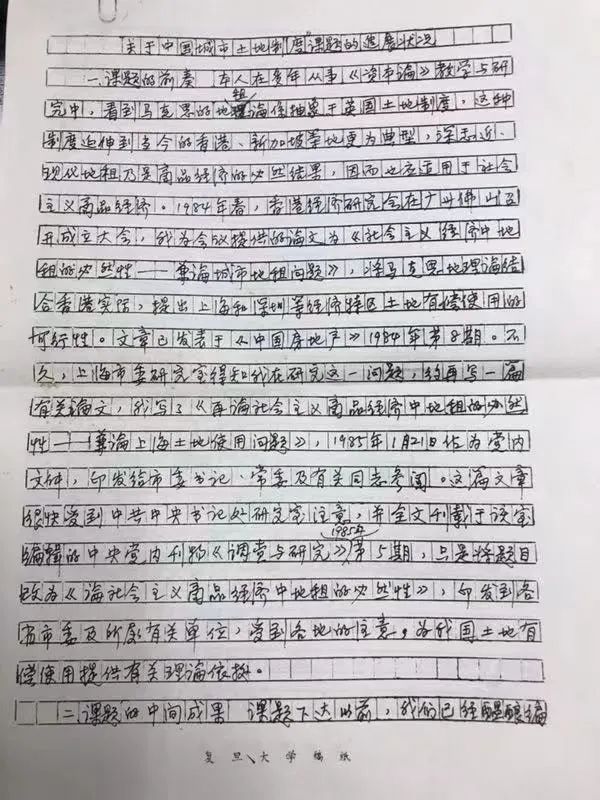 关于中国城市土地制度课题的进展状况
一.课题的前奏 本人在多年从事《资本论》教学与研
究中，看到马克思的地租理论像抽象于英国土地制度，这种
制度延伸到当今的香港、新加坡等地更为典型，深感近、
现代地租乃是商品经济的必然结果，因而也应适用于社会
主义商品经济。1984年春，香港经济研究会在广州佛山召
开成立大会，我为会议提供的论文为《社会主义经济中地
租的必然性——兼论城市地租问题》，将马克思地租理论结
合香港实际，提出上海和深圳等经济特区土地有偿使用的
可行性。文章已发表于《中国房地产》1984年第8期。不
久，上海市委研究室得知我在研究这一问题，约再写一篇
有关论文，我写了《再论社会主义商品经济中地租的必然
性——兼论上海土地使用问题》，1985年1月21日作为党内
文件，印发给市委书记、常委及有关同志参阅。这篇文章
很快受到中共中央书记处研究室注意，并全文刊载于该室
编辑的中央党内刊物《调查与研究》1985年第5期，只是将题目
改为《论社会主义商品经济中地租的必然性》，印发到各
省市委及所属有关单位，受到各地的注意，为我国土地有
偿使用提供有关理论依据。
二.课题的中间成果 课题下达以前，我们已经酝酿编
复旦大学稿纸